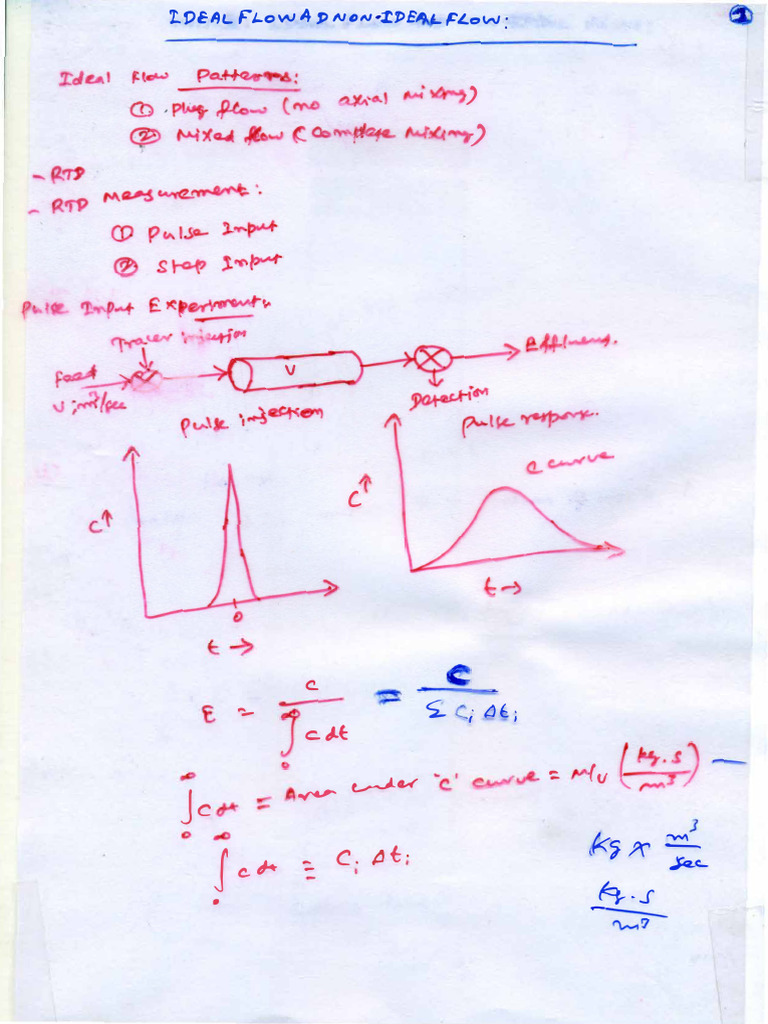 IDEAL FLOW AD NON-IDEAL FLOW: 1
Ideal Flow Patterns:
① Plug flow (no axial mixing)
② Mixed flow (Complete Mixing)
- RTD
- RTD Measurement:
① Pulse Input
② Step Input
Pulse Input Experiment:
Tracer injection
Feed
υ, m³/sec
V
Effluent.
Detection
Pulse injection
Pulse response.
C↑
0
t →
C↑
C curve
t →
E = C / ∫₀^∞ C dt = C / Σ Cᵢ Δtᵢ
∫₀^∞ C dt = Area under 'C' curve = M/υ (kg.s / m³) —
∫₀^∞ C dt ≡ Cᵢ Δtᵢ
kg × m³/sec
kg.s / m³